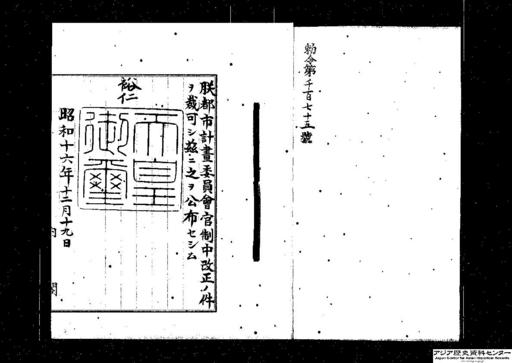 勅令第千百七十五號
朕都市計畫委員會官制中改正ノ件
ヲ裁可シ茲ニ之ヲ公布セシム
裕仁
天皇御璽
昭和十六年十二月十九日
内
閣
アジア歴史資料センター
Japan Center for Asian Historical Records